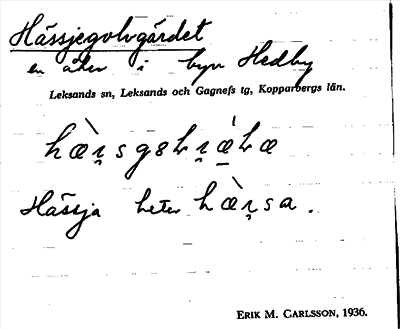 Hässjegolvgärdet
en åker i byn Hedby
Leksands sn, Leksands och Gagnefs tg, Kopparbergs län.
Hässja heter hæ̀r̥sa.
ERIK M. CARLSSON, 1936.